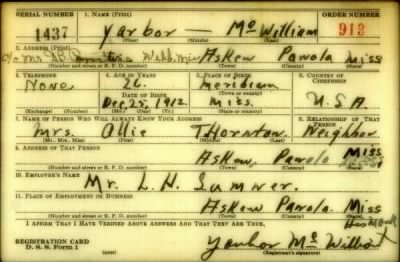 SERIAL NUMBER 1. NAME (Print) ORDER NUMBER
1437 Yarbor — Mc William 913
(First) (Middle) (Last)
2. ADDRESS (Print)
c/o Mr. Webb, Miss Askew Panola Miss
(Number and street or R. F. D. number) (Town) (County) (State)
3. TELEPHONE 4. AGE IN YEARS 5. PLACE OF BIRTH 6. COUNTRY OF CITIZENSHIP
None 26 Meridian
DATE OF BIRTH (Town or county)
Dec. 25, 1912 Miss. U.S.A.
(Exchange) (Number) (Mo.) (Day) (Yr.) (State or country)
7. NAME OF PERSON WHO WILL ALWAYS KNOW YOUR ADDRESS 8. RELATIONSHIP OF THAT PERSON
Mrs. Ollie Thornton Neighbor
(Mr., Mrs., Miss) (First) (Middle) (Last)
9. ADDRESS OF THAT PERSON
Askew, Panola Miss
(Number and street or R. F. D. number) (Town) (County) (State)
10. EMPLOYER'S NAME
Mr. L. H. Sumner.
11. PLACE OF EMPLOYMENT OR BUSINESS
Askew Panola. Miss
(Number and street or R. F. D. number) (Town) (County) (State)
I AFFIRM THAT I HAVE VERIFIED ABOVE ANSWERS AND THAT THEY ARE TRUE.
REGISTRATION CARD
D. S. S. Form 1 Yarbor Mc
(Registrant's signature)